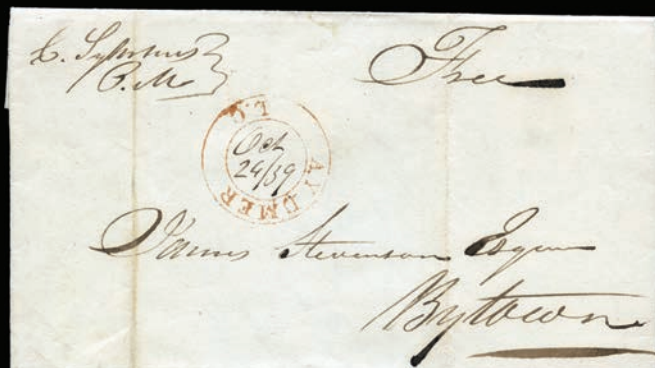 C. Symmes
P.M. Free
AYLMER L.C.
Oct
24/39
James Stevenson Esquire
Bytown